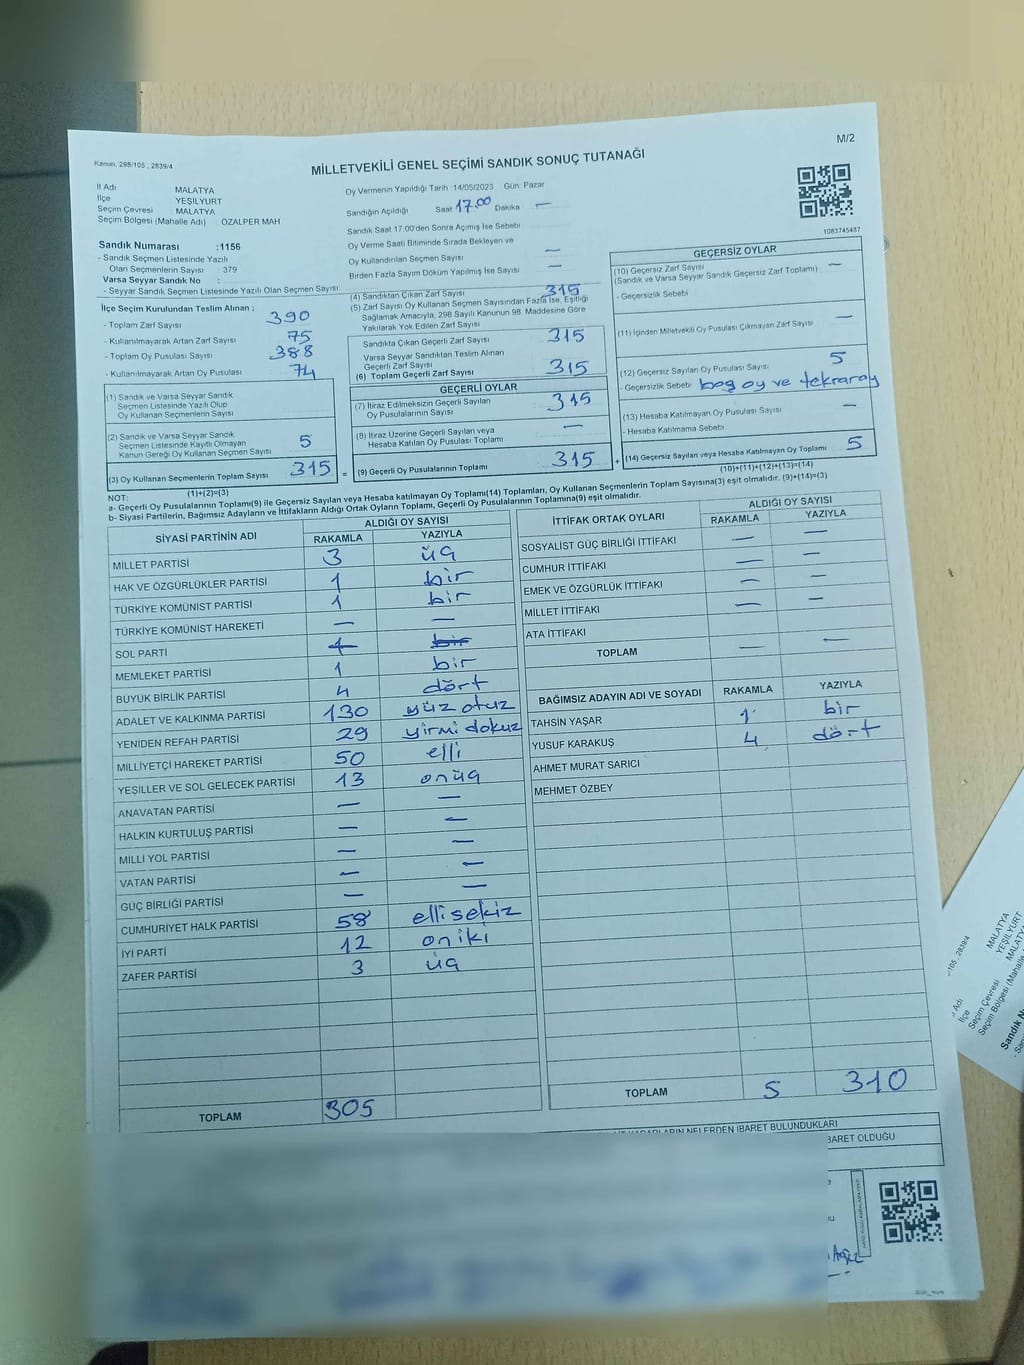 Kanun, 298/105 , 2839/4
M/2
MİLLETVEKİLİ GENEL SEÇİMİ SANDIK SONUÇ TUTANAĞI
İl Adı : MALATYA
İlçe YEŞİLYURT
Seçim Çevresi : MALATYA
Seçim Bölgesi (Mahalle Adı) : ÖZALPER MAH
Sandık Numarası :1156
- Sandık Seçmen Listesinde Yazılı
Olan Seçmenlerin Sayısı : 379
Varsa Seyyar Sandık No :
- Seyyar Sandık Seçmen Listesinde Yazılı Olan Seçmen Sayısı:
Oy Vermenin Yapıldığı Tarih :14/05/2023 Gün: Pazar
Sandığın Açıldığı Saat 17.00 Dakika —
Sandık Saat 17:00'den Sonra Açımış İse Sebebi
Oy Verme Saati Bitiminde Sırada Bekleyen ve
Oy Kullandırılan Seçmen Sayısı —
Birden Fazla Sayım Döküm Yapılmış İse Sayısı —
1083745487
İlçe Seçim Kurulundan Teslim Alınan ;
- Toplam Zarf Sayısı 390
- Kullanılmayarak Artan Zarf Sayısı 75
- Toplam Oy Pusulası Sayısı 388
- Kullanılmayarak Artan Oy Pusulası 74
(1) Sandık ve Varsa Seyyar Sandık
Seçmen Listesinde Yazılı Olup
Oy Kullanan Seçmenlerin Sayısı
(2) Sandık ve Varsa Seyyar Sandık
Seçmen Listesinde Kayıtlı Olmayan
Kanun Gereği Oy Kullanan Seçmen Sayısı 5
(3) Oy Kullanan Seçmenlerin Toplam Sayısı 315 =
(1)+(2)=(3)
(4) Sandıktan Çıkan Zarf Sayısı 315
(5) Zarf Sayısı Oy Kullanan Seçmen Sayısından Fazla İse, Eşitliği
Sağlamak Amacıyla, 298 Sayılı Kanunun 98. Maddesine Göre
Yakılarak Yok Edilen Zarf Sayısı
Sandıkta Çıkan Geçerli Zarf Sayısı 315
Varsa Seyyar Sandıktan Teslim Alınan
Geçerli Zarf Sayısı
(6) Toplam Geçerli Zarf Sayısı 315
GEÇERLİ OYLAR
(7) İtiraz Edilmeksizin Geçerli Sayılan
Oy Pusulalarının Sayısı 315
(8) İtiraz Üzerine Geçerli Sayılan veya
Hesaba Katılan Oy Pusulası Toplamı —
(9) Geçerli Oy Pusulalarının Toplamı 315 +
GEÇERSİZ OYLAR
(10) Geçersiz Zarf Sayısı —
(Sandık ve Varsa Seyyar Sandık Geçersiz Zarf Toplamı)
- Geçersizlik Sebebi
(11) İçinden Milletvekili Oy Pusulası Çıkmayan Zarf Sayısı —
(12) Geçersiz Sayılan Oy Pusulası Sayısı 5
- Geçersizlik Sebebi boş oy ve
(13) Hesaba Katılmayan Oy Pusulası Sayısı —
- Hesaba Katılmama Sebebi
(14) Geçersiz Sayılan veya Hesaba Katılmayan Oy Toplamı 5
(10)+(11)+(12)+(13)=(14)
NOT:
a- Geçerli Oy Pusulalarının Toplamı(9) ile Geçersiz Sayılan veya Hesaba katılmayan Oy Toplamı(14) Toplamları, Oy Kullanan Seçmenlerin Toplam Sayısına(3) eşit olmalıdır. (9)+(14)=(3)
b- Siyasi Partilerin, Bağımsız Adayların ve İttifakların Aldığı Ortak Oyların Toplamı, Geçerli Oy Pusulalarının Toplamına(9) eşit olmalıdır.
SİYASİ PARTİNİN ADI ALDIĞI OY SAYISI
RAKAMLA YAZIYLA
MİLLET PARTİSİ 3 üç
HAK VE ÖZGÜRLÜKLER PARTİSİ 1 bir
TÜRKİYE KOMÜNİST PARTİSİ 1 bir
TÜRKİYE KOMÜNİST HAREKETİ — —
SOL PARTİ 1 bir
MEMLEKET PARTİSİ 1 bir
BÜYÜK BİRLİK PARTİSİ 4 dört
ADALET VE KALKINMA PARTİSİ 130 yüz otuz
YENİDEN REFAH PARTİSİ 29 yirmi dokuz
MİLLİYETÇİ HAREKET PARTİSİ 50 elli
YEŞİLLER VE SOL GELECEK PARTİSİ 13 onüç
ANAVATAN PARTİSİ — —
HALKIN KURTULUŞ PARTİSİ — —
MİLLİ YOL PARTİSİ — —
VATAN PARTİSİ — —
GÜÇ BİRLİĞİ PARTİSİ — —
CUMHURİYET HALK PARTİSİ 58 ellisekiz
İYİ PARTİ 12 oniki
ZAFER PARTİSİ 3 üç
TOPLAM 305
İTTİFAK ORTAK OYLARI ALDIĞI OY SAYISI
RAKAMLA YAZIYLA
SOSYALİST GÜÇ BİRLİĞİ İTTİFAKI — —
CUMHUR İTTİFAKI — —
EMEK VE ÖZGÜRLÜK İTTİFAKI — —
MİLLET İTTİFAKI — —
ATA İTTİFAKI
TOPLAM — —
BAĞIMSIZ ADAYIN ADI VE SOYADI RAKAMLA YAZIYLA
TAHSİN YAŞAR 1 bir
YUSUF KARAKUŞ 4 dört
AHMET MURAT SARICI
MEHMET ÖZBEY
TOPLAM 5 310
KARARLARIN NELERDEN İBARET BULUNDUKLARI
İBARET OLDUĞU
/105 , 2839/4
İl Adı
İlçe
Seçim Çevresi
Seçim Bölgesi (Mahalle
MALATYA
YEŞİLYURT
MALATYA
Sandık N